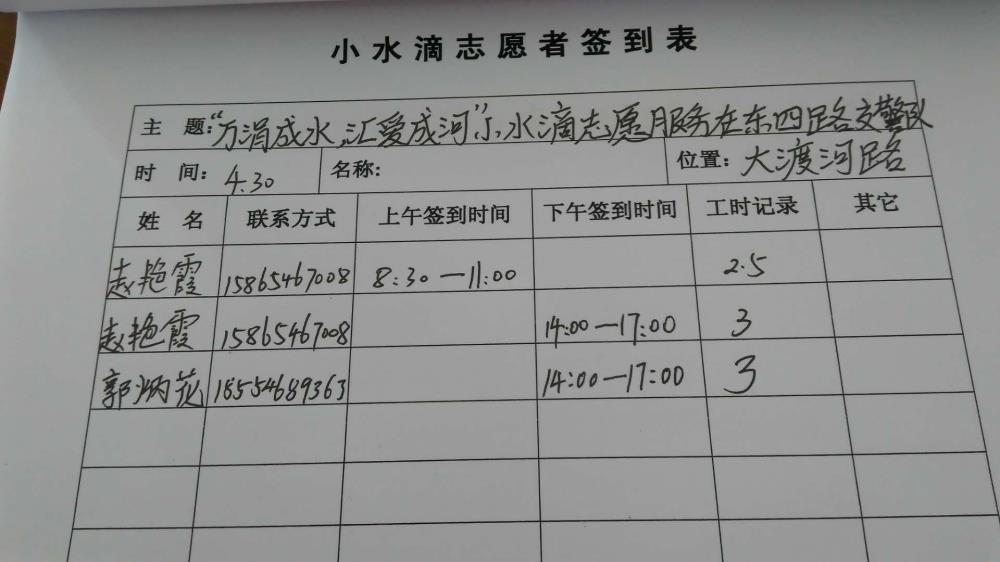 小水滴志愿者签到表
主 题:“万涓成水,汇爱成河”小水滴志愿服务在东四路交警队
时 间: 4.30 名称: 位置: 大渡河路
姓 名 联系方式 上午签到时间 下午签到时间 工时记录 其它
赵艳霞 15865467008 8:30—11:00 2.5
赵艳霞 15865467008 14:00—17:00 3
郭炳花 18554689363 14:00—17:00 3